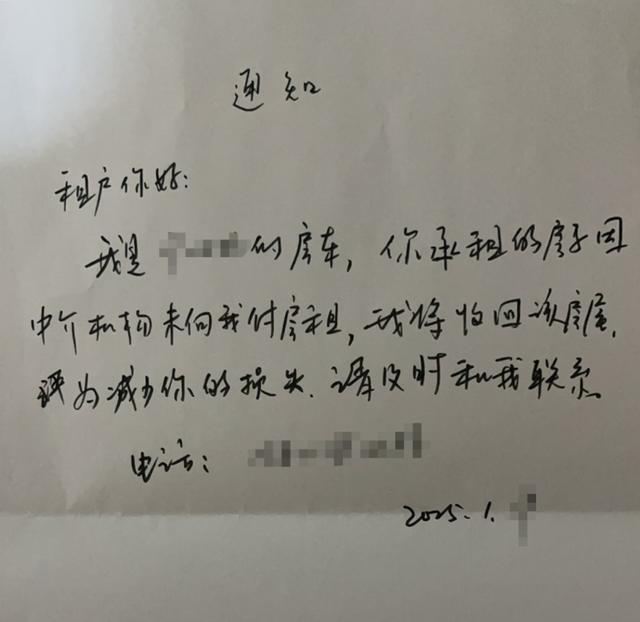 通知
租户你好:
我是的房东,你承租的房子因
中介机构未向我付房租,我将收回该房屋.
为减少你的损失.请及时和我联系
电话:
2025.1.